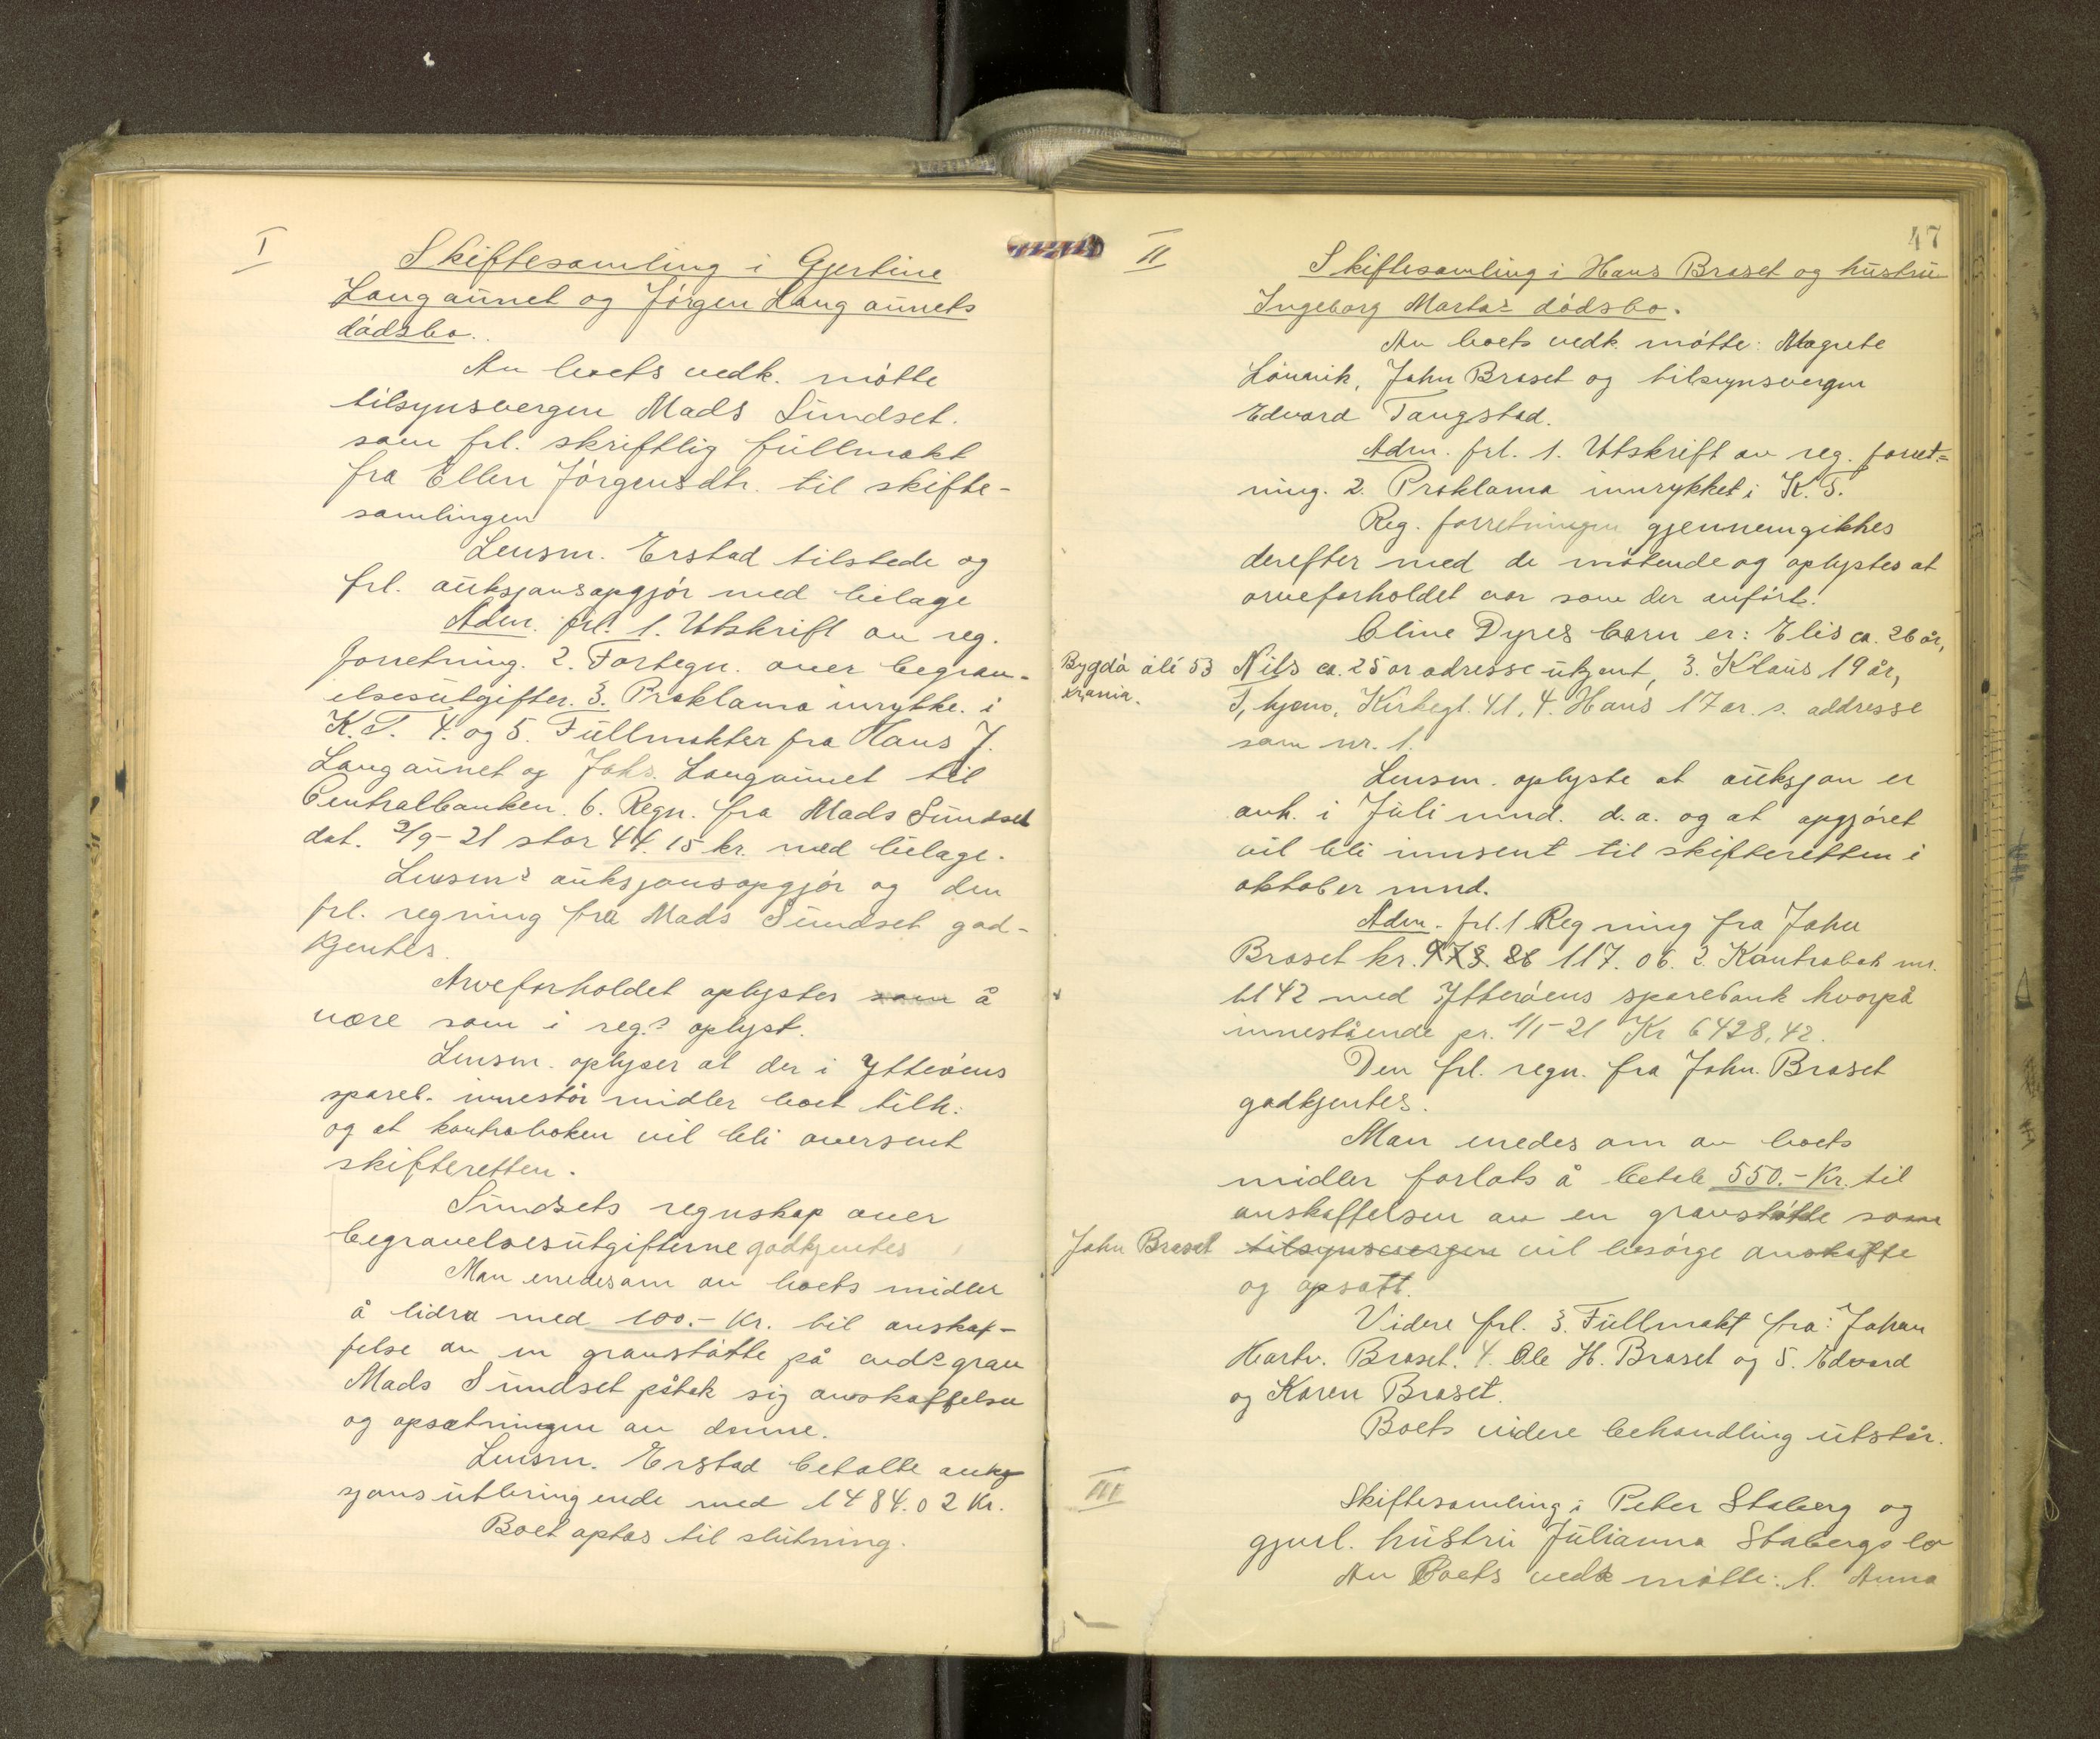 I
Skiftesamling i Gjertine
Langaunet og Jörgen Langaunets
dödsbo.
Av boets vedk. mötte
tilsynsvergen Mads Sundset.
som frl. skriftlig fullmakt
fra Ellen Jörgensdtr. til skifte-
samlingen
Lensm. Erstad tilstede og
frl. auksjonsopgjör med bilage
Adm. frl. 1. Utskrift av reg.
forretning. 2. Fortegn. over begrav-
elsesutgifter. 3. Proklama inrykke. i
K.T. 4. og 5. Fullmakter fra Hans J.
Langaunet og Johs. Langaunet til
Centralbanken. 6. Regn. fra Mads Sundset
dat. 2/9-21 stor 44.15 kr. med bilage.
Lensms auksjonsopgjör og den
frl. regning fra Mads Sundset god-
kjentes.
Arveforholdet oplystes som å
være som i reg.s oplyst.
Lensm. oplyser at der i Ytteröens
spareb. innestår midler boet tilh.
og at kontraboken vil bli oversent
skifteretten.
Sundsets regnskap over
begravelsesutgifterne godkjentes
Man enedes om av boets midler
å bidra med 100.- Kr. til anskaf-
felse av en gravstötte på avds grav
Mads Sundset påtok sig anskaffelsen
og opsætningen av denne.
Lensm. Erstad betalte auk
sjonsutbringende med 1484.02 Kr.
Boet optas til slutning.
47
II
Skiftesamling i Hans Braset og hustru
Ingeborg Martas dödsbo.
Av boets vedk. mötte: Magrete
Lönvik, John Braset og tilsynsvergen
Edvard Tangstad.
Adm. frl. 1. Utskrift av reg. forret=
ning. 2. Proklama innrykket i K.T.
Reg. forretningen gjennemgikkes
derefter med de mötende og oplystes at
arveforholdet var som der anfört.
Oline Dyres barn er: Elis ca. 26 år,
Bygdö alé 53 Nils ca. 25 år adresse ukjent, 3. Klaus 19 år,
Krania.
T, hjem, Kirkegt. 41, 4. Hans 17 år. s. addresse
som nr. 1.
Lensm. oplyste at auksjon er
avh. i Juli mnd. d.a. og at opgjöret
vil bli innsent til skifteretten i
oktober mnd.
Adm. frl. 1 Regning fra John
Braset kr. 117.06. 2. Kontrabok nr.
1142 med Ytteröens sparebank hvorpå
innestående pr. 1/1-21 Kr 6428,42.
Den frl. regn. fra John Braset
godkjentes.
Man enedes om av boets
midler forlots å betale 550.- Kr. til
anskaffelsen av en gravstötte som
John Braset tilsynsvergen vil besörge anskaffe
og opsatt.
Videre frl. 3. Fullmakt fra: Johan
Hartv. Braset. 4. Ole H. Braset og 5. Edvard
og Karen Braset.
Boets videre behandling utstår.
III
Skiftesamling i Peter Staberg og
gjenl. hustru Julianna Stabergs bo
Av Boets vedk mötte: 1. Anna